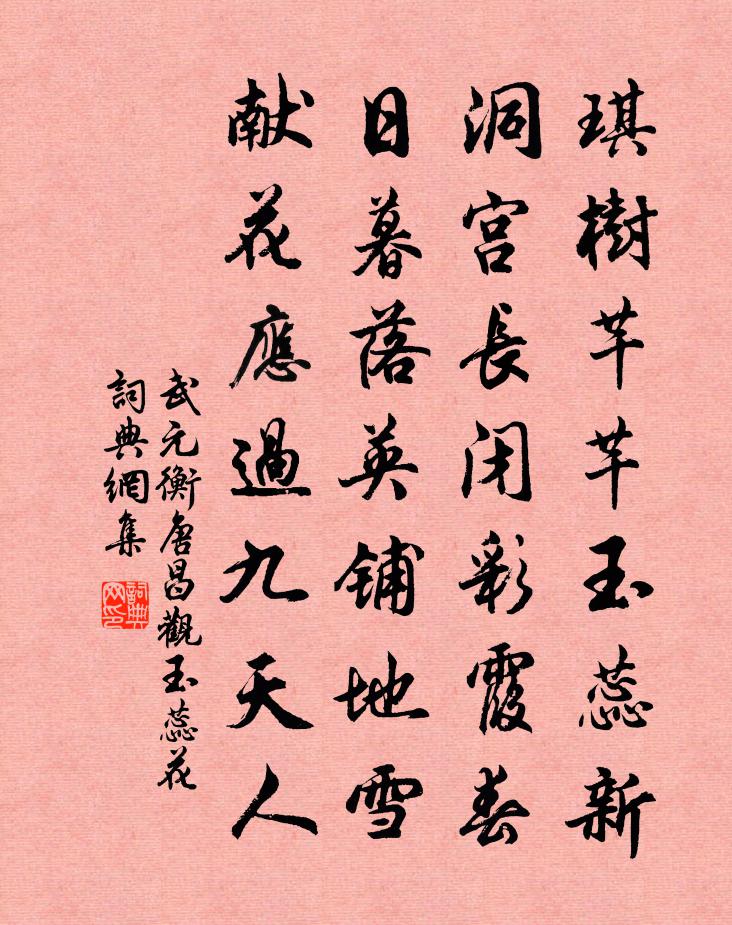 琪樹芊芊玉蕊新
洞宫長闭彩霞春
日暮落英铺地雪
献花應過九天人
武元衡唐昌觀玉蕊花
詞典網集
詞典网印